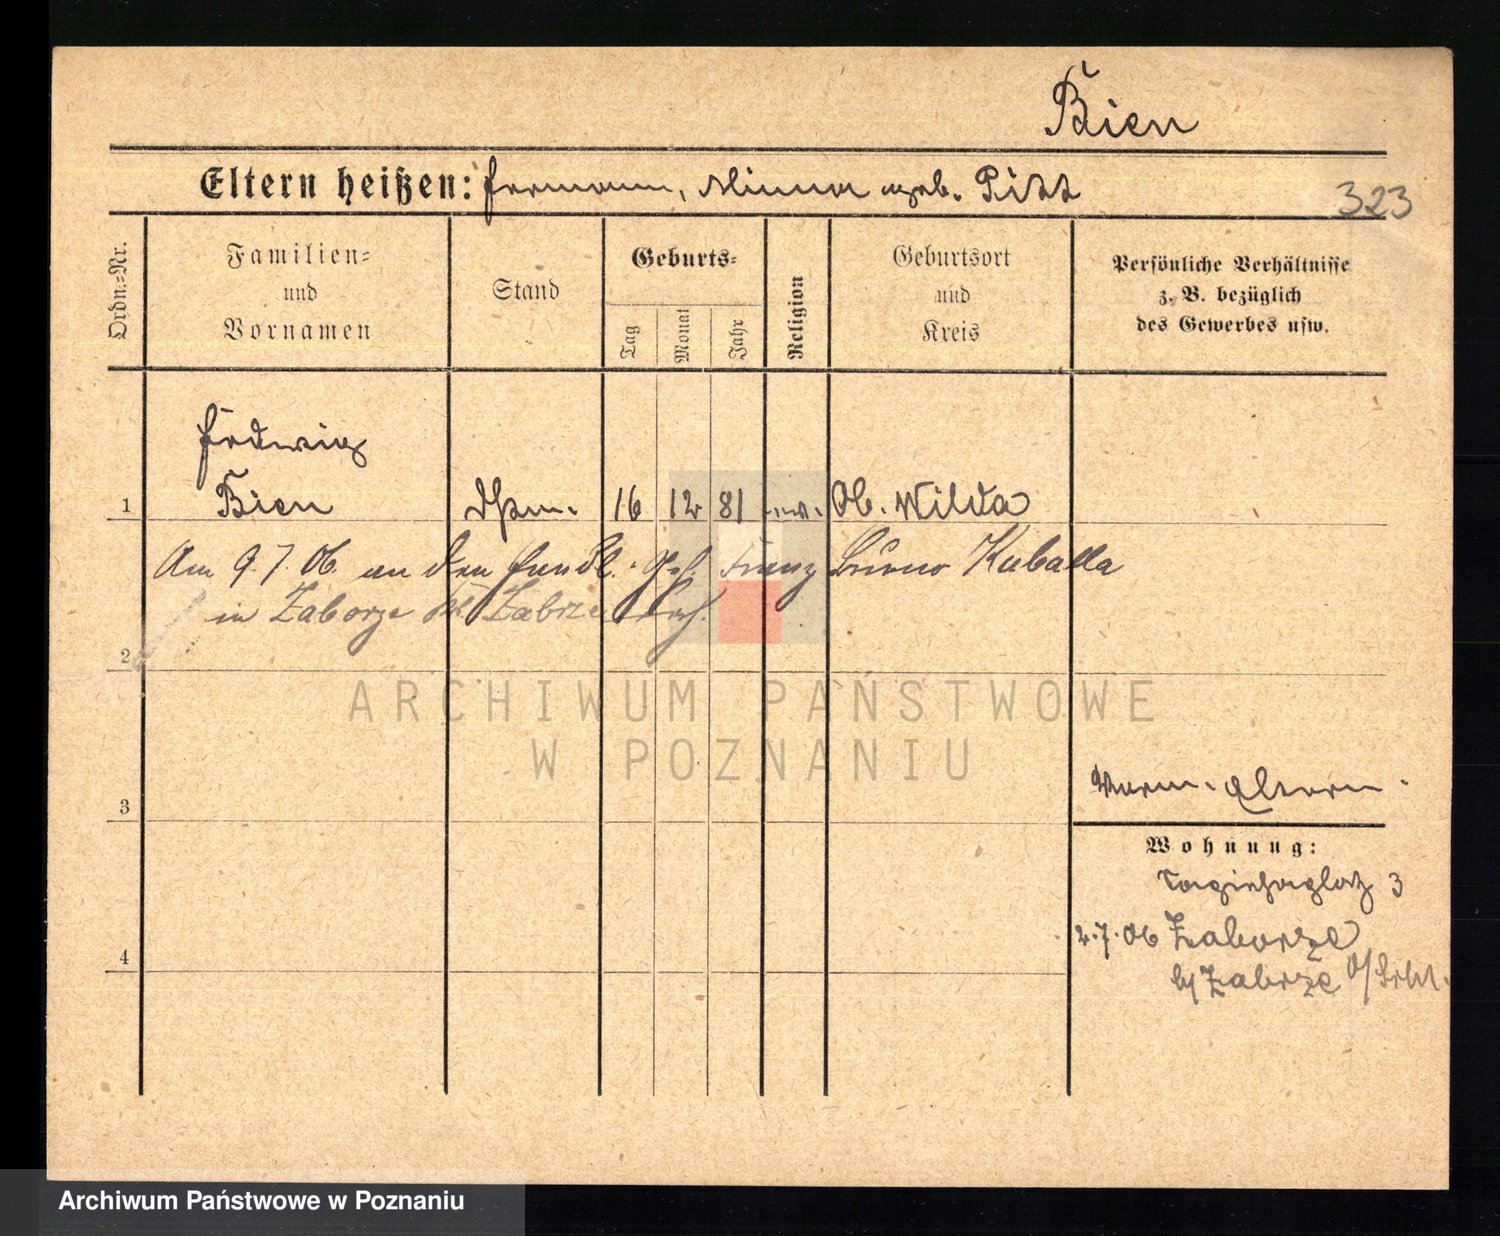 Bien
Eltern heißen: Hermann, Minna geb. Pitt
323
Ordn.=Nr.
Familien=
und
Vornamen
Stand
Geburts=
Tag
Monat
Jahr
Religion
Geburtsort
und
Kreis
Persönliche Verhältnisse
z. B. bezüglich
des Gewerbes usw.
Hedwig
1 Bien 16 12 81 Ob. Wilda
Am 9.7.06 an den Handl. Geh. Franz Bruno Kuballa
in Zaborze Kr. Zabrze
2
ARCHIWUM PAŃSTWOWE
W POZNANIU
3
Verm. Eltern.
Wohnung:
3
2.7.06 Zaborze
b/ Zabrze O/Schl.
4
Archiwum Państwowe w Poznaniu